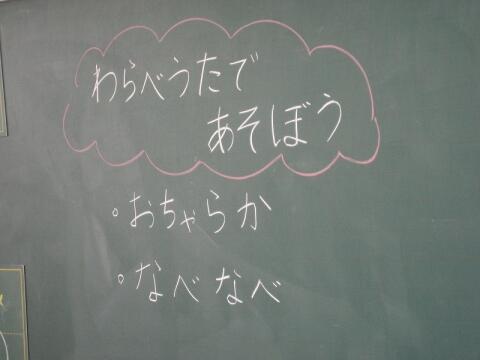 わらべうたで
あそぼう
・おちゃらか
・なべなべ